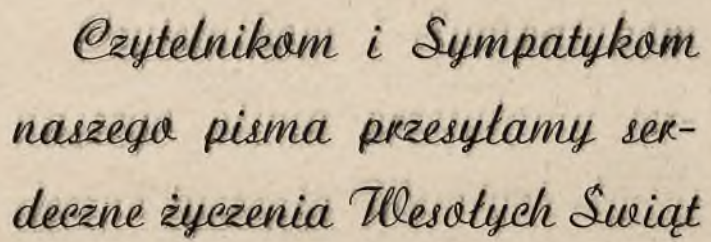 Czytelnikom i Sympatykom
naszego pisma przesyłamy ser-
deczne życzenia Wesołych Świąt